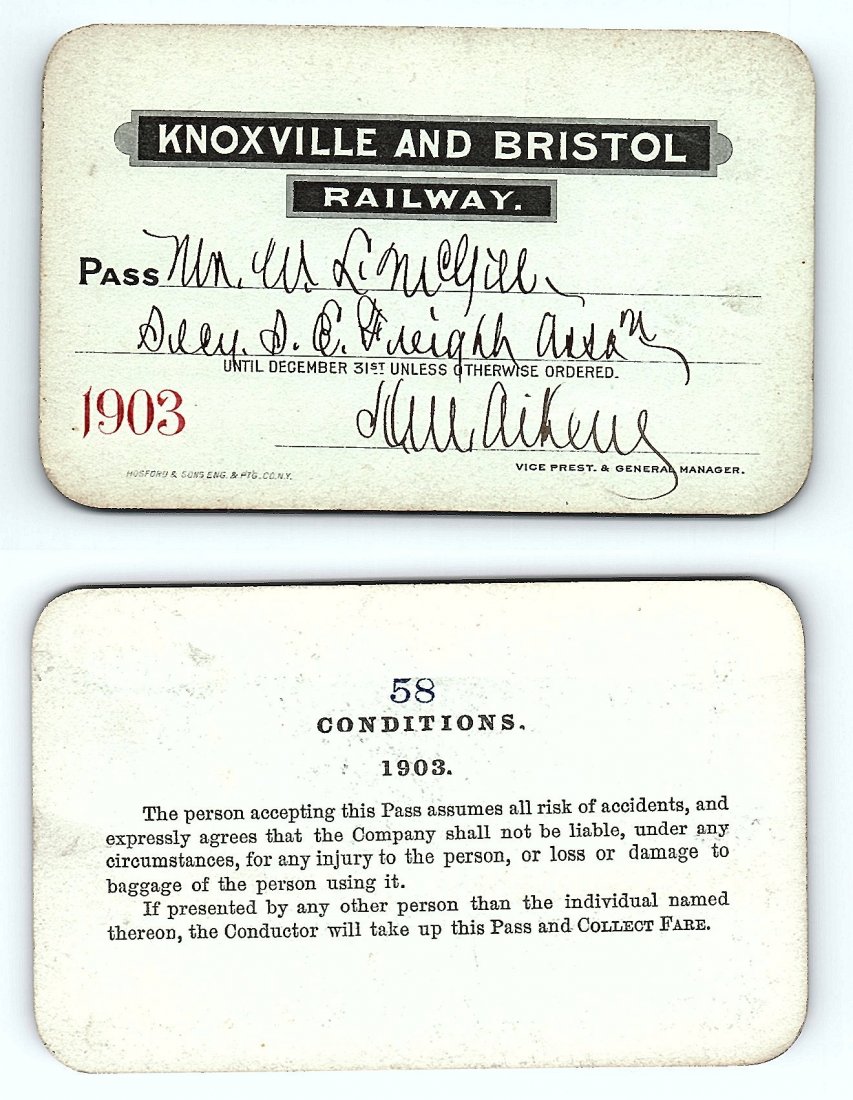 KNOXVILLE AND BRISTOL
RAILWAY.
PASS Mr. W. L. McGill,
Secy. S. E. Freight Assn,
UNTIL DECEMBER 31ST UNLESS OTHERWISE ORDERED.
1903
Aikens
VICE PREST. & GENERAL MANAGER.
HOSFORD & SONS ENG. & PTG. CO. N.Y.
58
CONDITIONS.
1903.
The person accepting this Pass assumes all risk of accidents, and
expressly agrees that the Company shall not be liable, under any
circumstances, for any injury to the person, or loss or damage to
baggage of the person using it.
If presented by any other person than the individual named
thereon, the Conductor will take up this Pass and COLLECT FARE.